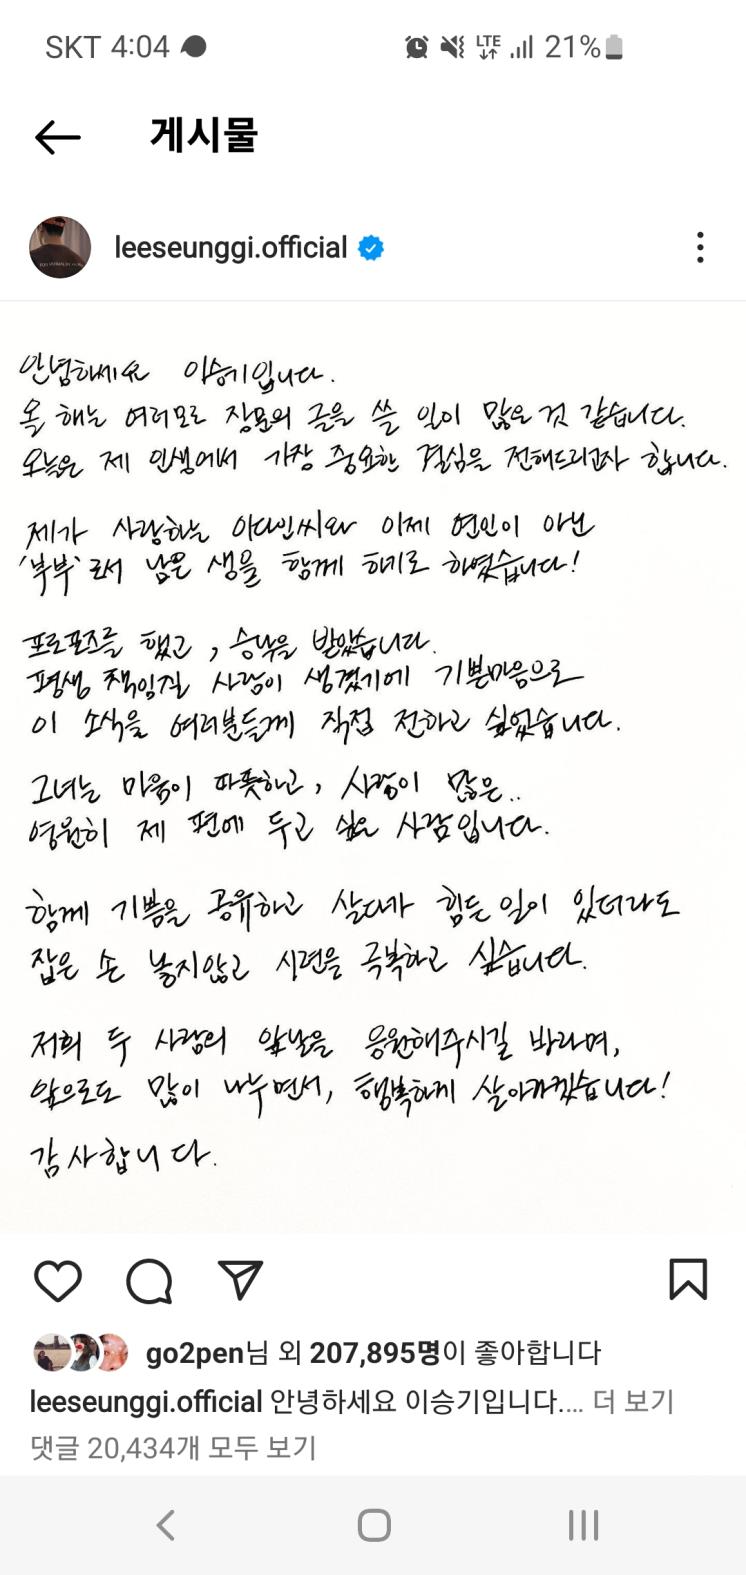 SKT 4:04 LTE 21%
게시물
leeseunggi.official
안녕하세요 이승기입니다.
올 해는 여러모로 장문의 글을 쓸 일이 많은 것 같습니다.
오늘은 제 인생에서 가장 중요한 결심을 전해드리고자 합니다.
제가 사랑하는 이다인씨와 이제 연인이 아닌
'부부'로서 남은 생을 함께 하기로 하였습니다!
프로포즈를 했고, 승낙을 받았습니다.
평생 책임질 사람이 생겼기에 기쁜마음으로
이 소식을 여러분들께 직접 전하고 싶었습니다.
그녀는 마음이 따뜻하고, 사랑이 많은..
영원히 제 편에 두고 싶은 사람입니다.
함께 기쁨을 공유하고 살다가 힘든 일이 있더라도
잡은 손 놓지않고 시련을 극복하고 싶습니다.
저희 두 사람의 앞날을 응원해주시길 바라며,
앞으로도 많이 나누면서, 행복하게 살아가겠습니다!
감사합니다.
go2pen님 외 207,895명이 좋아합니다
leeseunggi.official 안녕하세요 이승기입니다.... 더 보기
댓글 20,434개 모두 보기